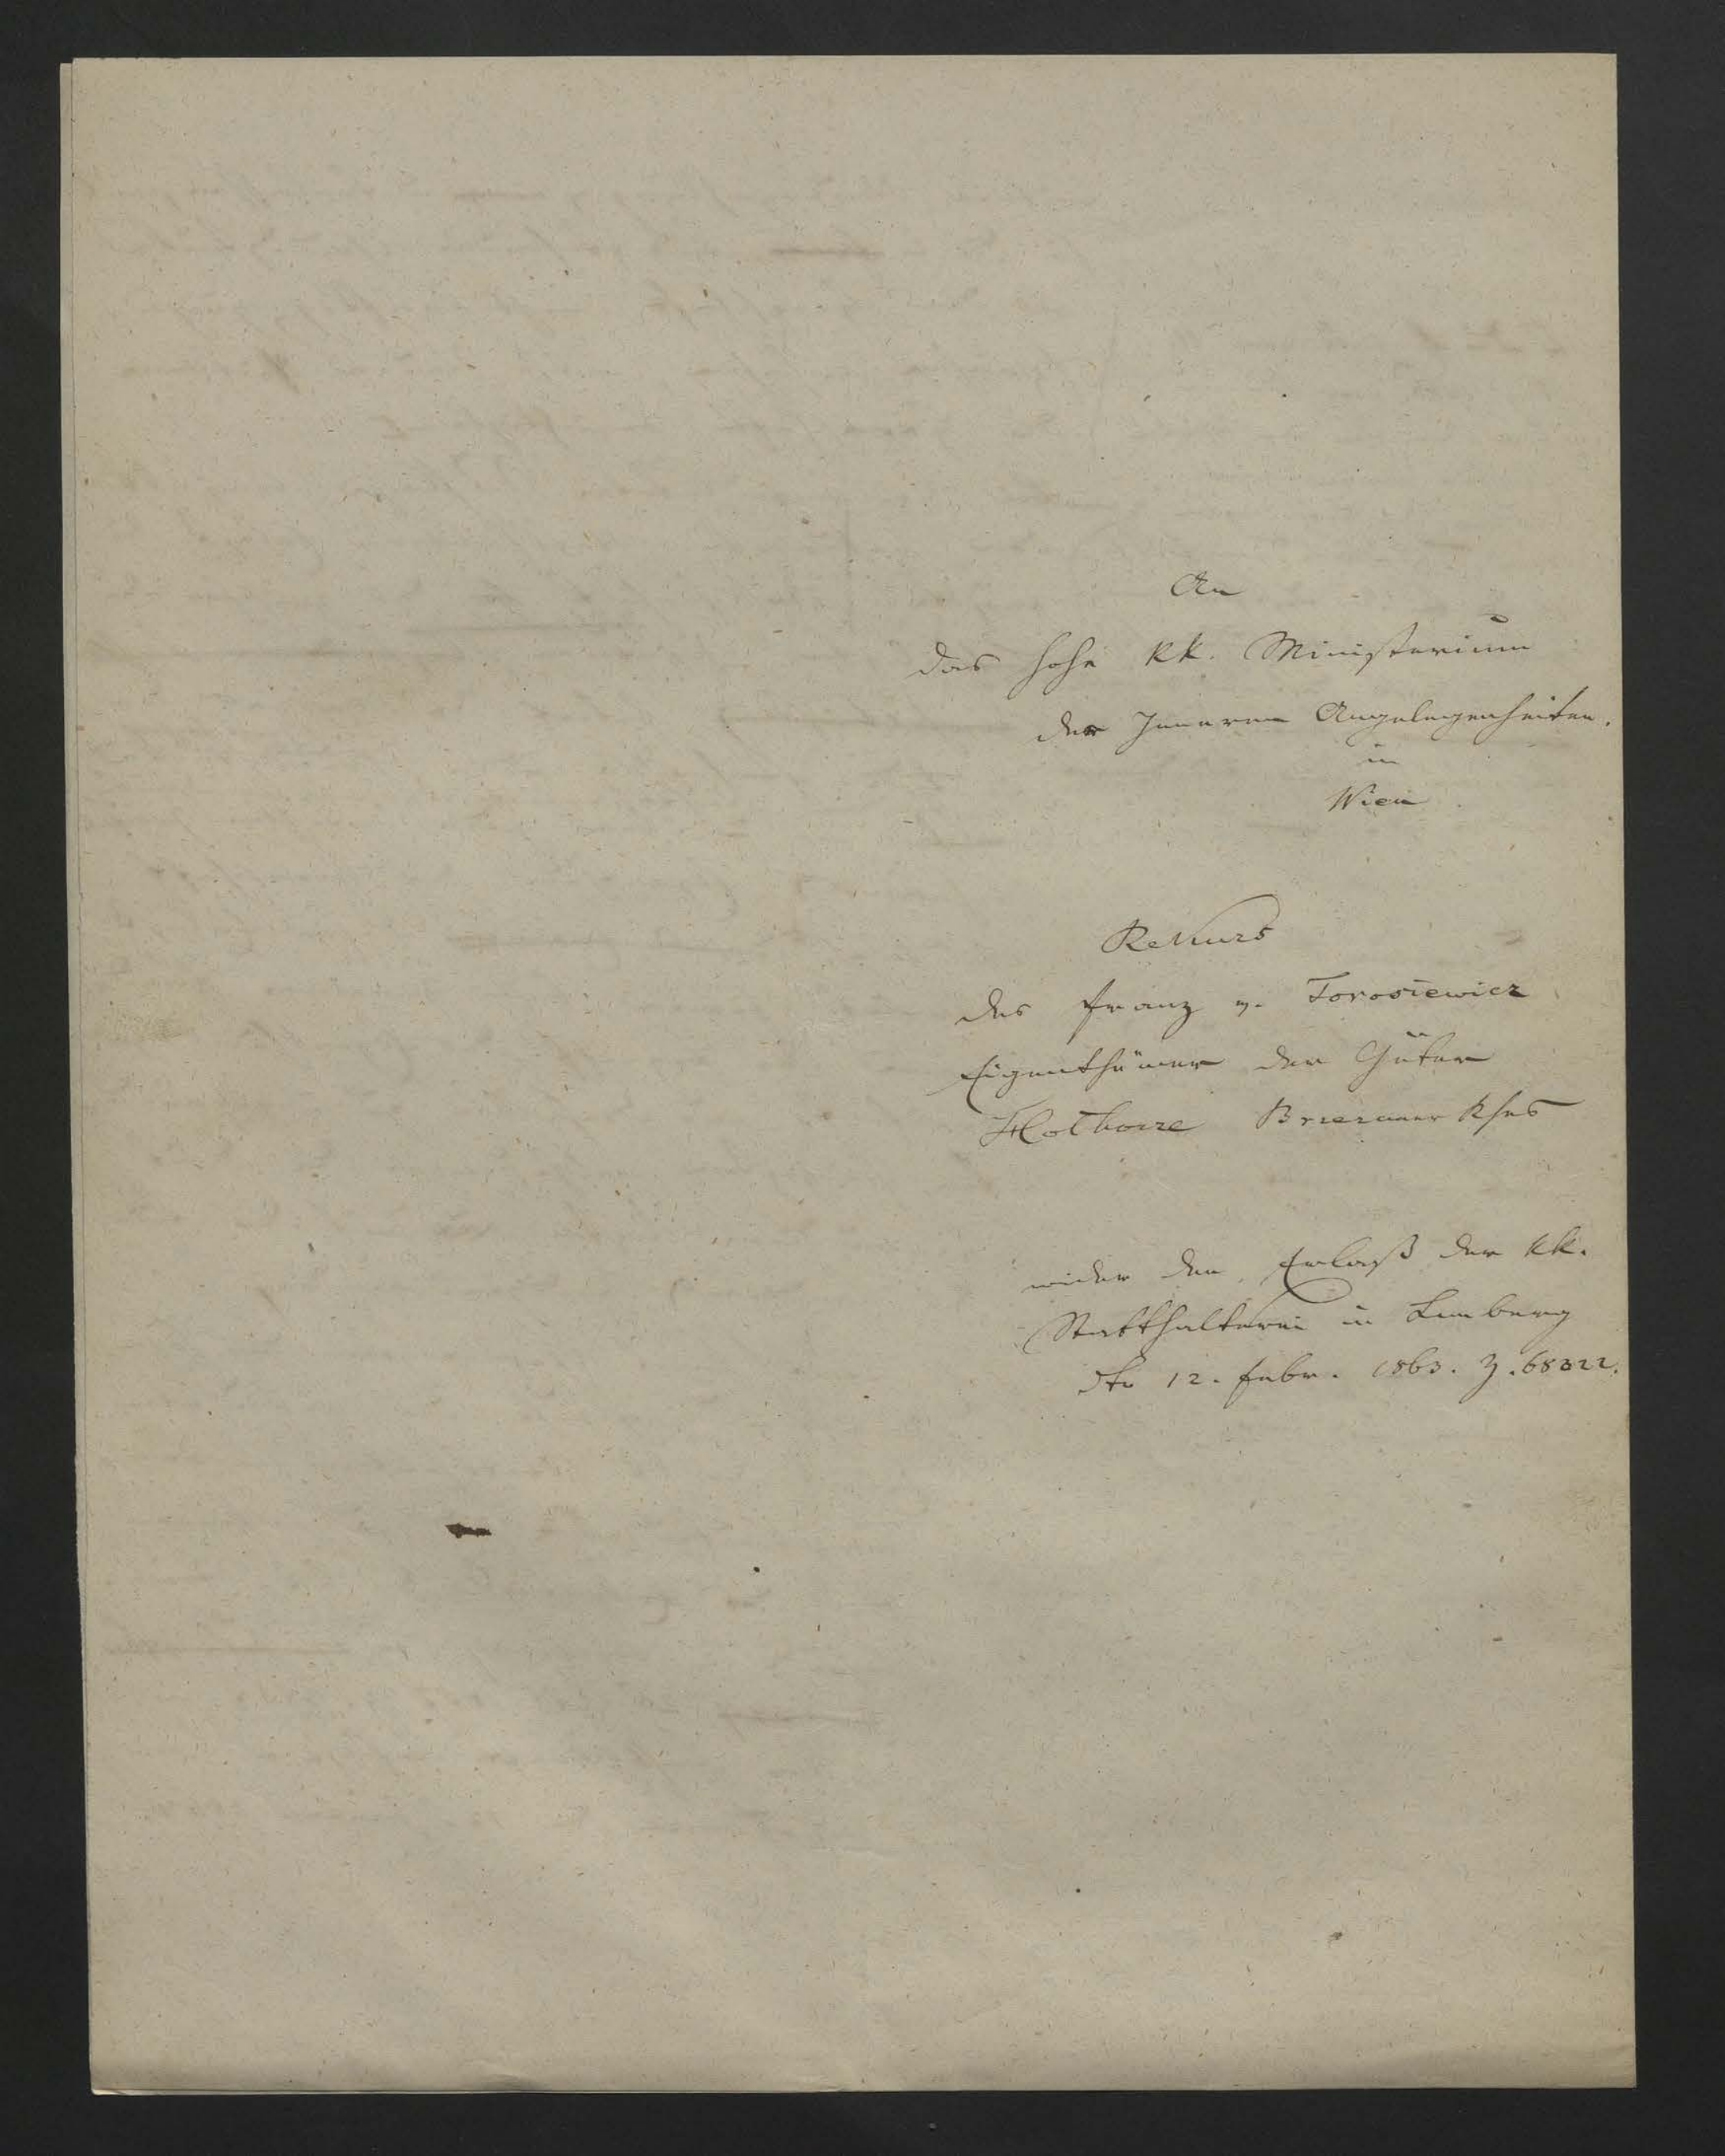 An
das hohe kk. Ministerium
der Inneren Angelegenheiten.
in
Wien
Rekurs
des Franz v. Torosiewicz
Eigenthümer der Güter
Brzezaner Kses
wider den Erlaß der kk.
Statthalterei in Lemberg
dto 12. Febr. 1863. Z. 68322.